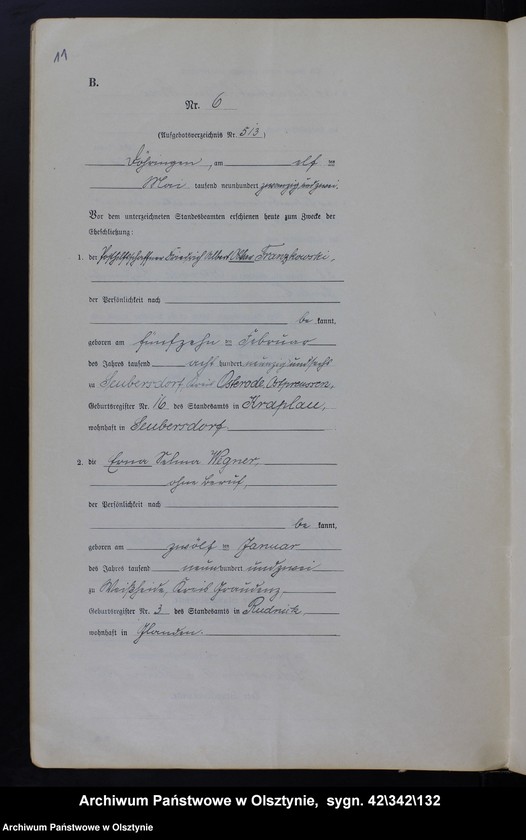 11
B.
Nr. 6
(Aufgebotsverzeichnis Nr. 513)
Döhringen, am elf ten
Mai tausend neunhundert zwanzig und zwei.
Vor dem unterzeichneten Standesbeamten erschienen heute zum Zwecke der
Eheschließung:
1. der Posthilfsschaffner Friedrich Albert Franzkowski,
der Persönlichkeit nach
be kannt,
geboren am fünfzehn ten Februar
des Jahrs tausend acht hundert neunzig und sechs
zu Seubersdorf, Kreis Osterode, Ostpreussen,
Geburtsregister Nr. 16 des Standesamts in Kraplau,
wohnhaft in Seubersdorf
2. die Erna Selma Wegner,
ohne Beruf,
der Persönlichkeit nach
be kannt,
geboren am zwölf ten Januar
des Jahrs tausend neun hundert und zwei
zu Weißheide, Kreis Graudenz
Geburtsregister Nr. 3 des Standesamts in Rudnick
wohnhaft in Glanden.
Archiwum Państwowe w Olsztynie, sygn. 42\342\132
Archiwum Państwowe w Olsztynie